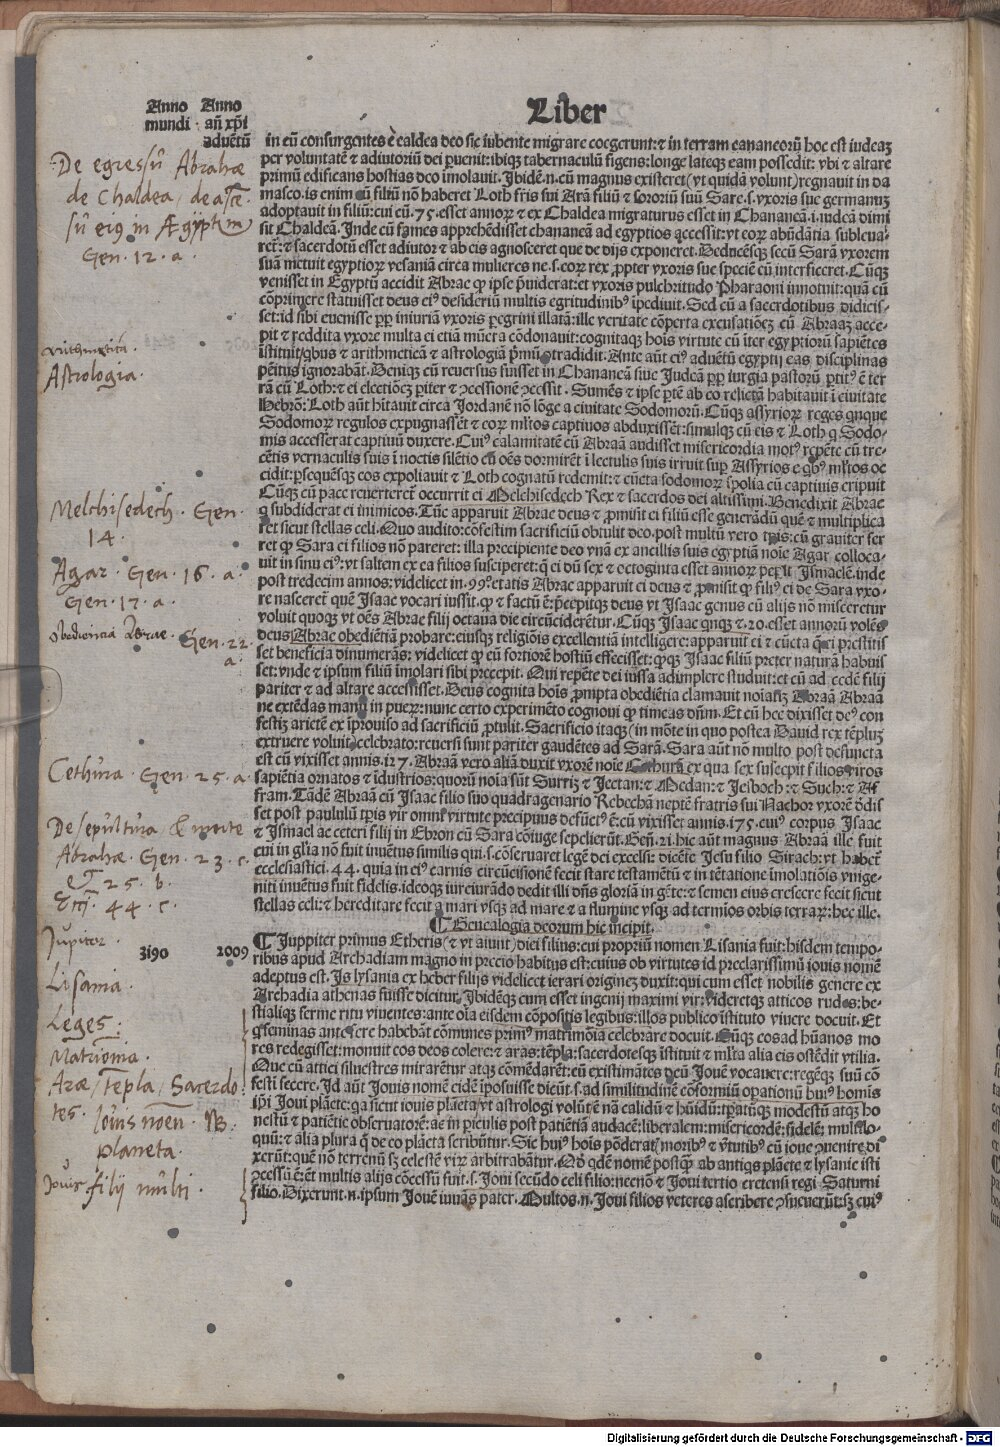 Liber
Anno Anno
mundi añ xp̄i
aduētū
in eū consurgentes ē caldea deo sic iubente migrare coegerunt: ⁊ in terram cananeorū hoc est iudeaꝫ
per voluntatē ⁊ adiutoriū dei ꝑuenit: ibiqꝫ tabernaculū figens: longe lateqꝫ eam possedit: vbi ⁊ altare
primū edificans hostias deo imolauit. Ibidē.n. cū magnus existeret (vt quidā volunt) regnauit in da
masco. is enim cū filiū nō haberet Loth fr̄is sui Arā filiū ⁊ sororiū suū Sare.s. vxoris sue germanuꝫ
adoptauit in filiū: cui cū .75. esset annoꝝ ⁊ ex Chaldea migraturus esset in Chananeā.i. iudeā dimi
sit Chaldeā. Inde cū fames apprehēdisset chananeā ad egyptios accessit: vt eoꝝ abūdātia subleua-
ret: ⁊ sacerdotū esset adiutor ⁊ ab eis agnosceret que de dijs exponeret. Deducēsqꝫ secū Sarā vxorem
suā metuit egyptioꝝ vesaniā circa mulieres ne.s. eoꝝ rex ꝓpter vxoris sue speciē eū interficeret. Cūqꝫ
venisset in Egyptū accidit Abrae ꝙ ipse p̄uiderat: et vxoris pulchritudo Pharaoni innotuit: quā cū
cōprimere statuisset deus eiꝰ desideriū multis egritudinibꝰ īpediuit. Sed cū a sacerdotibus didicis-
set: id sibi euenisse ꝓp iniuriā vxoris ꝑegrini illatā: ille veritate cōperta excusatiōeꝫ cū Abraaꝫ acce-
pit ⁊ reddita vxore multa ei etiā mūera cōdonauit: cognitaqꝫ hois virtute cū iter egyptiorū sapiētes
īstituit: qbus ⁊ arithmeticā ⁊ astrologiā p̄mū tradidit. Ante aūt eiꝰ aduētū egyptij eas disciplinas
pēitus ignorabāt. Deniqꝫ cū reuersus fuisset in Chananeā siue Judeā ꝓp iurgia pastorū ꝑtitꝰ ē ter
rā cū Loth: ⁊ ei electiōeꝫ ꝑiter ⁊ ꝯcessionē ꝯcessit. Sumēs ⁊ ipse ꝑtē ab eo relictā habitauit ī ciuitate
Hebrō: Loth aūt hītauit circa Jordanē nō lōge a ciuitate Sodomorū. Cūqꝫ assyrioꝝ reges qnque
Sodomoꝝ regulos expugnassēt ⁊ eoꝝ ml̄tos captiuos abduxissēt: simulqꝫ cū eis ⁊ Loth q Sodo-
mis accesserat captiuū duxere. Cuiꝰ calamitatē cū Abraā audisset misericordia motꝰ repēte cū tre-
cētis vernaculis suis ī noctis silētio cū oēs dormirēt ī lectulis suis irruit suꝑ Assyrios e qbꝰ ml̄tos oc
cidit: ꝑsequēsqꝫ eos expoliauit ⁊ Loth cognatū redemit: ⁊ cūcta sodomoꝝ spolia cū captiuis eripuit
Cūqꝫ cū pace reuerteret̄ occurrit ei Melchisedech Rex ⁊ sacerdos dei altissimi. Benedixit Abrae
q subdiderat ei inimicos. Tūc apparuit Abrae deus ⁊ ꝓmisit ei filiū esse generādū quē ⁊ multiplica
ret sicut stellas celi. Quo audito: cōfestim sacrificiū obtulit deo. post multū vero tꝑis: cū grauiter fer
ret ꝙ Sara ei filios nō pareret: illa precipiente deo vnā ex ancillis suis egyptiā noīe Agar colloca-
uit in sinu eiꝰ: vt saltem ex ea filios susciperet: q ei dū sex ⁊ octoginta esset annoꝝ peꝑit Ismaelē. inde
post tredecim annos: videlicet in .99°. etatis Abrae apparuit ei deus ⁊ ꝓmisit ꝙ filiꝰ ei de Sara vxo-
re nasceret quē Isaac vocari iussit. ꝙ ⁊ factū ē: p̄cepitqꝫ deus vt Isaac genus cū alijs nō misceretur
voluit quoqꝫ vt oēs Abrae filij octaua die circūciderētur. Cūqꝫ Isaac qnqꝫ ⁊ .20. esset annorū volēs
deus Abrae obediētiā probare: eiusqꝫ religiōis excellentiā intelligere: apparuit ei ⁊ cūcta q̄ ei prestitis
set beneficia dinumerās: videlicet ꝙ eū fortiorē hostiū effecisset: ꝙqꝫ Isaac filiū preter naturā habuis
set: vnde ⁊ ipsum filiū īmolari sibi precepit. Qui repēte dei iussa adimplere studuit: et cū ad cedē filij
pariter ⁊ ad altare accessisset. Deus cognita hois ꝓmpta obediētia clamauit noiatiꝫ Abraā Abraā
ne extēdas manū in pueꝝ: nunc certo experimēto cognoui ꝙ timeas dn̄m. Et cū hec dixisset deꝰ con
festiꝫ arietē ex īprouiso ad sacrificiū ꝓtulit. Sacrificio itaqꝫ (in mōte in quo postea Dauid rex tēpluꝫ
extruere voluit) celebrato: reuersi sunt pariter gaudētes ad Sarā. Sara aūt nō multo post defuncta
est cū vixisset annis .127. Abraā vero aliā duxit vxorē noīe Cethurā ex qua sex suscepit filios viros
sapiētia ornatos ⁊ īdustrios: quorū noīa sūt Surriꝫ ⁊ Jectan: ⁊ Medan: ⁊ Jesboch: ⁊ Such: ⁊ Af
fram. Tādē Abraā cū Isaac filio suo quadragenario Rebechā neptē fratris sui Nachor vxorē ddis
set post paululū tꝑis vir omni virtute precipuus defūctꝰ ē: cū vixisset annis .175. cuiꝰ corpus Isaac
⁊ Ismael ac ceteri filij in Ebron cū Sara cōiuge sepelierūt. Geñ. 21. hic aūt magnus Abraā ille fuit
cui in gl̄ia nō fuit inuētus similis qui.s. cōseruaret legē dei excelsi: dicēte Jesu filio Sirach: vt habet
ecclesiastici .44. quia in eiꝰ carnis circūcisionē fecit stare testamētū ⁊ in tētatione īmolatiōis vnige-
niti inuētus fuit fidelis. ideoqꝫ iureiurādo dedit illi dn̄s gloriā in gēte: ⁊ semen eius crescere fecit sicut
stellas celi: ⁊ hereditare fecit a mari vsqꝫ ad mare ⁊ a flumine vsqꝫ ad termios orbis terraꝝ: hec ille.
¶ Genealogia deorum hic incipit.
3190 2009
¶ Juppiter primus Etheris (⁊ vt aiunt) diei filius: cui propriū nomen Lisania fuit: hisdem tempo-
ribus apud Archadiam magno in precio habitus est: cuius ob virtutes id preclarissimū iouis nomē
adeptus est. Is lysania ex heber filijs videlicet ierari origineꝫ duxit: qui cum esset nobilis genere ex
Archadia athenas fuisse dicitur. Ibidēqꝫ cum esset ingenij maximi vir: videretqꝫ atticos rudes: be-
stialiqꝫ ferme ritu viuentes: ante oīa eisdem cōpositis legibus: illos publico īstituto viuere docuit. Et
q̄ feminas ante fere habebāt cōmunes primꝰ matrimōia celebrāre docuit. Cūqꝫ eos ad hūanos mo
res redegisset: monuit eos deos colere: ⁊ aras: tēpla: sacerdotesqꝫ īstituit ⁊ ml̄ta alia eis ostēdit vtilia.
Que cū attici siluestres mirarētur atqꝫ cōmēdarēt: eū existimātes deū Jouē vocauere: regēqꝫ suū cō
festi fecere. Id aūt Jouis nomē eidē īposuisse dicūt.s. ad similitudinē cōformiū opationū huiꝰ homis
ip̄i Joui plāete: qa sicut iouis plāeta (vt astrologi volūt) ē nā calidū ⁊ hūidū: tꝑatūqꝫ modestū atqꝫ ho
nestū ⁊ patiētie obseruatorē: ac in ꝑiculis post patiētiā audacē: liberalem: misericordē: fidelē: multilo-
quū: ⁊ alia plura q̄ de eo plāeta scribūtur. Sic huiꝰ hois pōderatꝭ moribꝰ ⁊ v̄tutibꝰ cū ioue ꝯuenire di
xerūt: quē nō terrenū sꝫ celestē viꝝ arbitrabātur. Qd qdē nomē postqꝫ ab antiqs plāete ⁊ lysanie isti
ꝯcessū ē: ēt multis alijs cōcessū fuit.s. Joui secūdo celi filio: necnō ⁊ Joui tertio cretensiū regi Saturni
filio. Dixerunt.n. ipsum Jouē iuuās pater. Multos.n. Joui filios veteres ascribere ꝯsueuerūt: sꝫ cuiꝰ
De egressū Abrahæ
de Chaldea, de asce
sū eiꝰ in Ægyptū
Gen. 12. a.
Arithmetica.
Astrologia.
Melchisedech. Gen.
14.
Agar. Gen. 16. a.
Gen. 17. a.
Obediencia Abrae. Gen. 22.
a.
Cethura Gen 25. a.
De sepultura, & morte
Abrahæ. Gen. 23. c.
et 25. b.
Eccī. 44. c.
Jupiter.
Lisania.
Leges:
Matrīonia.
Aræ, Tēpla, Sacerdo
tes. Iouis noēn. NB.
planeta.
Jouis filij multi.
Digitalisierung gefördert durch die Deutsche Forschungsgemeinschaft - DFG